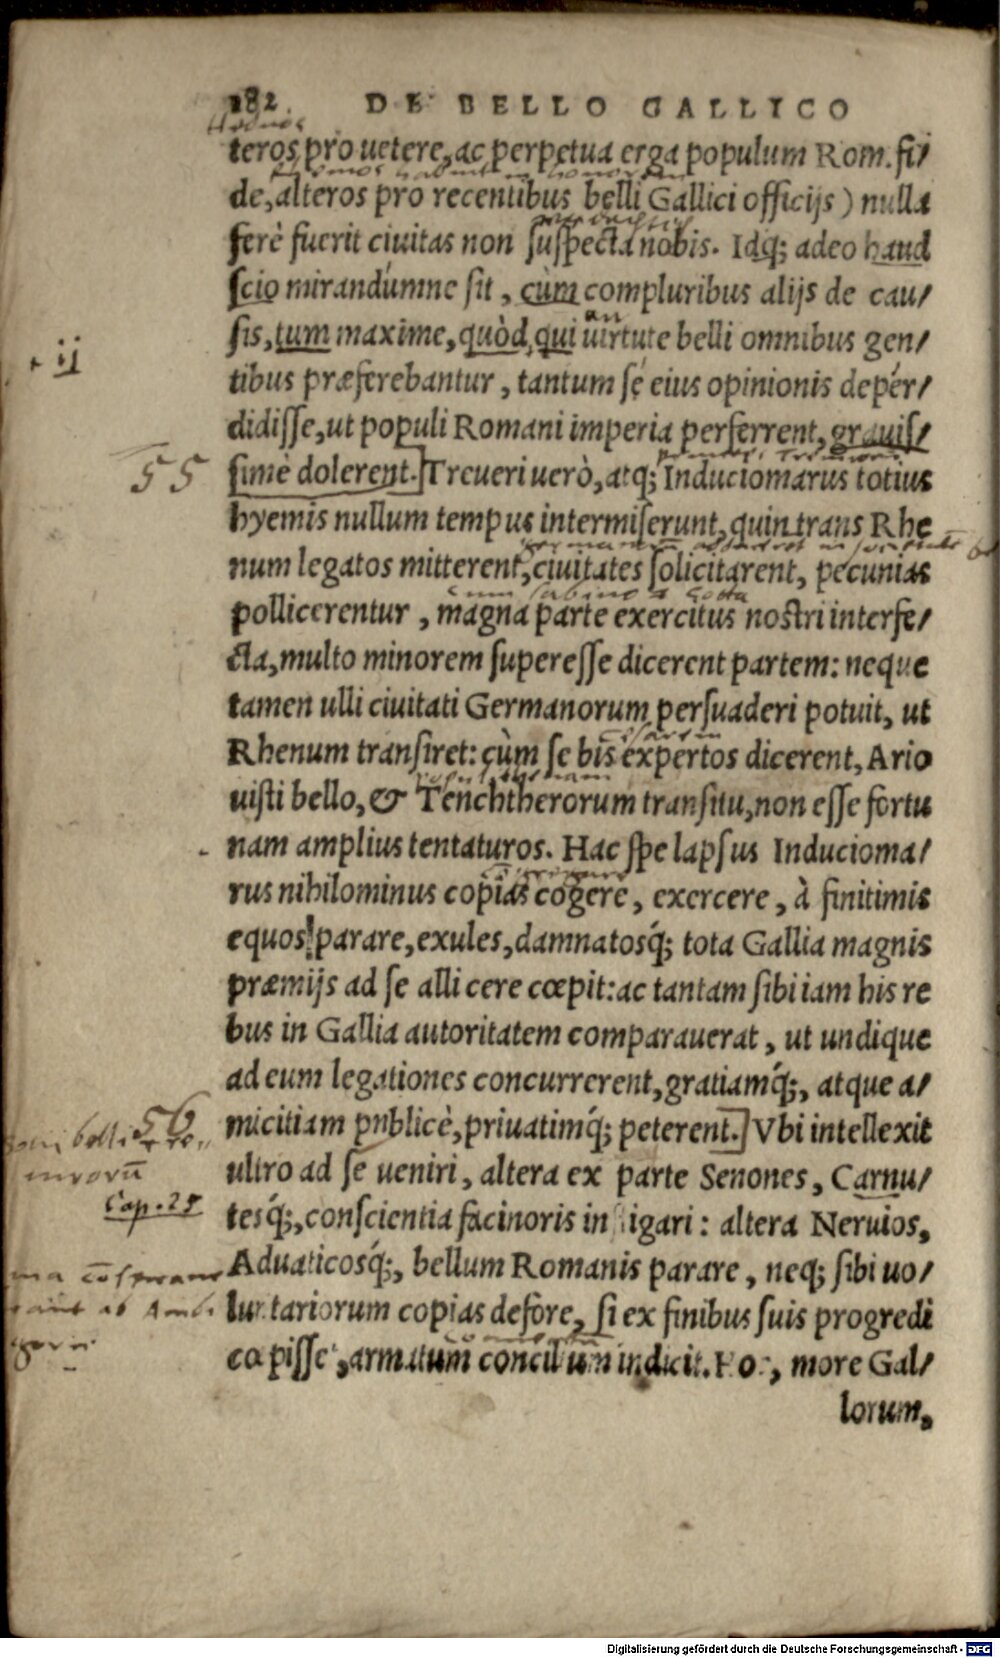 182 DE BELLO GALLICO
teros, pro uetere, ac perpetua erga populum Rom. fi/
de, alteros pro recentibus belli Gallici officijs) nulla
ferè fuerit ciuitas non suspecta nobis. Idq́; adeo haud
scio mirandúmne sit, cùm compluribus alijs de cau/
sis, tum maxime, quòd, qui uirtute belli omnibus gen/
ij
tibus præferebantur, tantum se eius opinionis deper/
didisse, ut populi Romani imperia perferrent, grauis/
55
simè dolerent.] Treueri uerò, atq; Induciomarus totius
hyemis nullum tempus intermiserunt, quin trans Rhe
num legatos mitterent, ciuitates solicitarent, pecunias
cum Sabino & Cotta
pollicerentur, magna parte exercitus nostri interfe/
cta, multo minorem superesse dicerent partem: neque
tamen ulli ciuitati Germanorum persuaderi potuit, ut
Rhenum transiret: cùm se bis expertos dicerent, Ario
uisti bello, & Tenchtherorum transitu, non esse fortu
nam amplius tentaturos. Hac spe lapsus Inducioma/
rus nihilominus copias cogere, exercere, à finitimis
equos parare, exules, damnatosq́; tota Gallia magnis
præmijs ad se alli cere cœpit: ac tantam sibi iam his re
bus in Gallia autoritatem comparauerat, ut undique
ad eum legationes concurrerent, gratiamq́;, atque a/
56
micitiam publicè, priuatimq́; peterent.] Vbi intellexit
ultro ad se ueniri, altera ex parte Senones, Carnu/
Cap. 25
tesq́;, conscientia facinoris instigari: altera Neruios,
Aduaticosq́;, bellum Romanis parare, neq; sibi uo/
luntariorum copias defore, si ex finibus suis progredi
cœpisset, armatum concilium indicit. Hoc, more Gal/
lorum,
Digitalisierung gefördert durch die Deutsche Forschungsgemeinschaft - DFG